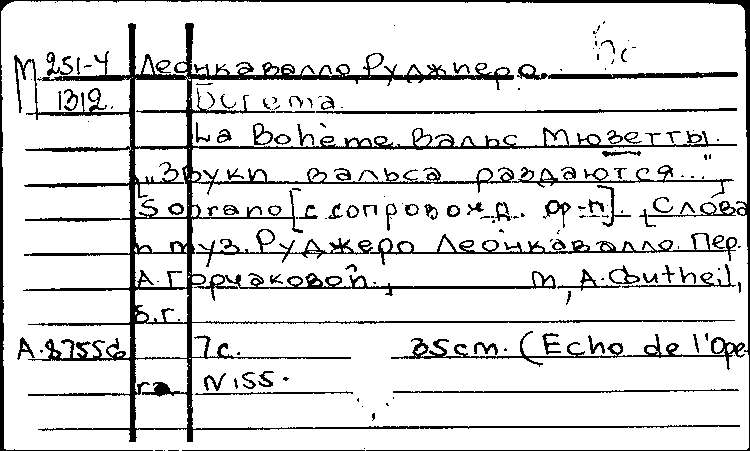 М 251-4 Леонкавалло, Руджиеро.
1312. Богема.
La Bohème. Вальс Мюзетты.
„Звуки вальса раздаются..."
Soprano [с сопровожд. ф-п]. [Слова
и муз. Руджеро Леонкавалло. Пер.
А. Горчаковой.], М, A. Gutheil,
б.г.
7с. 35cm. (Echo de l'Ope-
ra N 155.